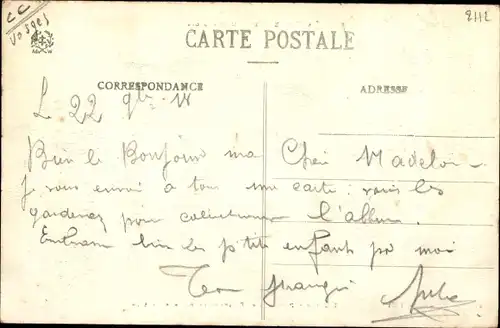 CC
Vosges
2112
CARTE POSTALE
CORRESPONDANCE
ADRESSE
L 22 9bre 
Bien le Bonjour ma Cher Madelon
Je vous envoi a tous une carte : vous les
garderez pour collectionner l'album.
Embrasse bien les p'tits enfants pr moi
Ton
Jules